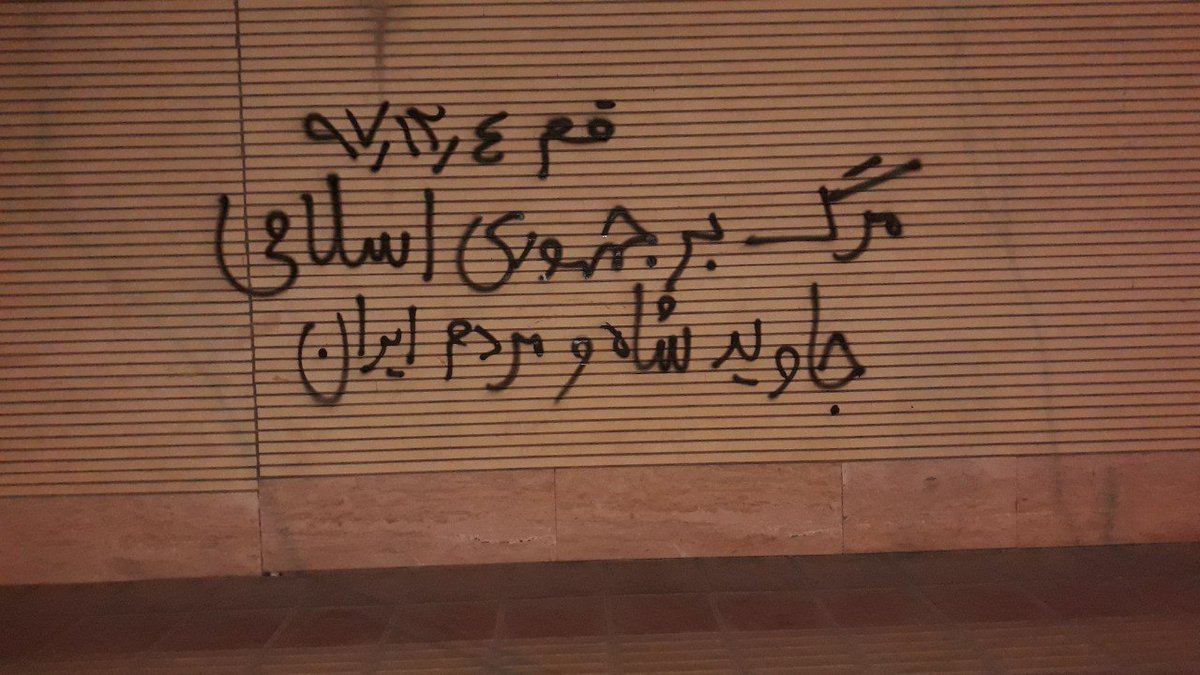 قم ٩٧,١٢,٤
مرگ بر جمهوری اسلامی
جاوید شاه و مردم ایران